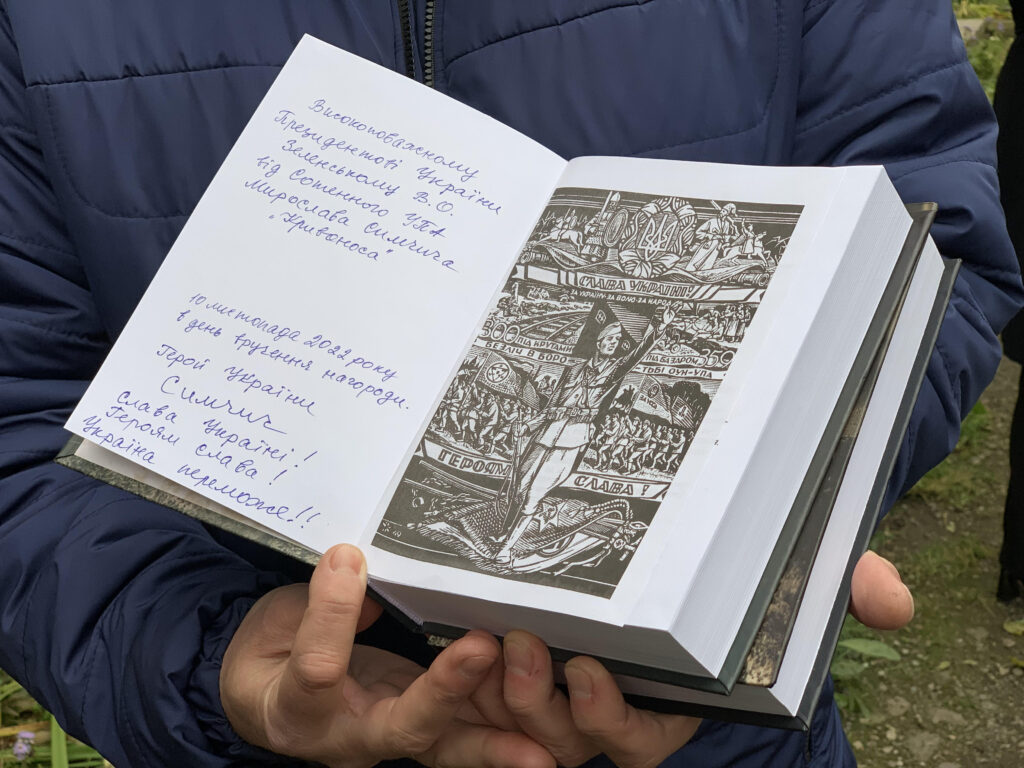 Високоповажному
Президентові України
Зеленському В.О.
від Сотенного УПА
Мирослава Симчича
"Кривоноса"
10 листопада 2022 року
в день вручення нагороди.
Герой України
Симчич
Слава Україні!
Героям слава!
Україна переможе!!
СЛАВА УКРАЇНІ!
ЗА УКРАЇНУ·ЗА ВОЛЮ·ЗА НАРОД
300 ПІД КРУТАМИ
ПІД БАЗАРОМ 359
ВЕЛИЧ В БОРО
ТЬБІ ОУН-УПА
ГЕРОЯМ
СЛАВА!